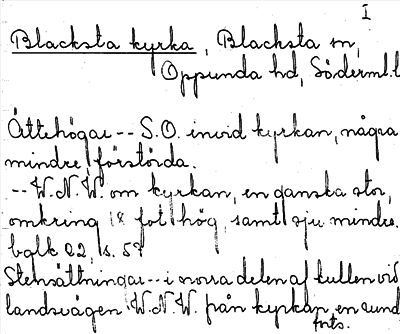 I
Blacksta kyrka, Blacksta sn,
Oppunda hd, Söderml.l
Ättehögar -- S.O. invid kyrkan, några
mindre förstörda.
-- W.N.W. om kyrkan, en ganska stor,
omkring 18 fot hög, samt sju mindre.
balk 22, s. 5?
Stensättningar -- i norra delen af kullen vid
landsvägen W.N.W. från kyrkan, en rund
forts.